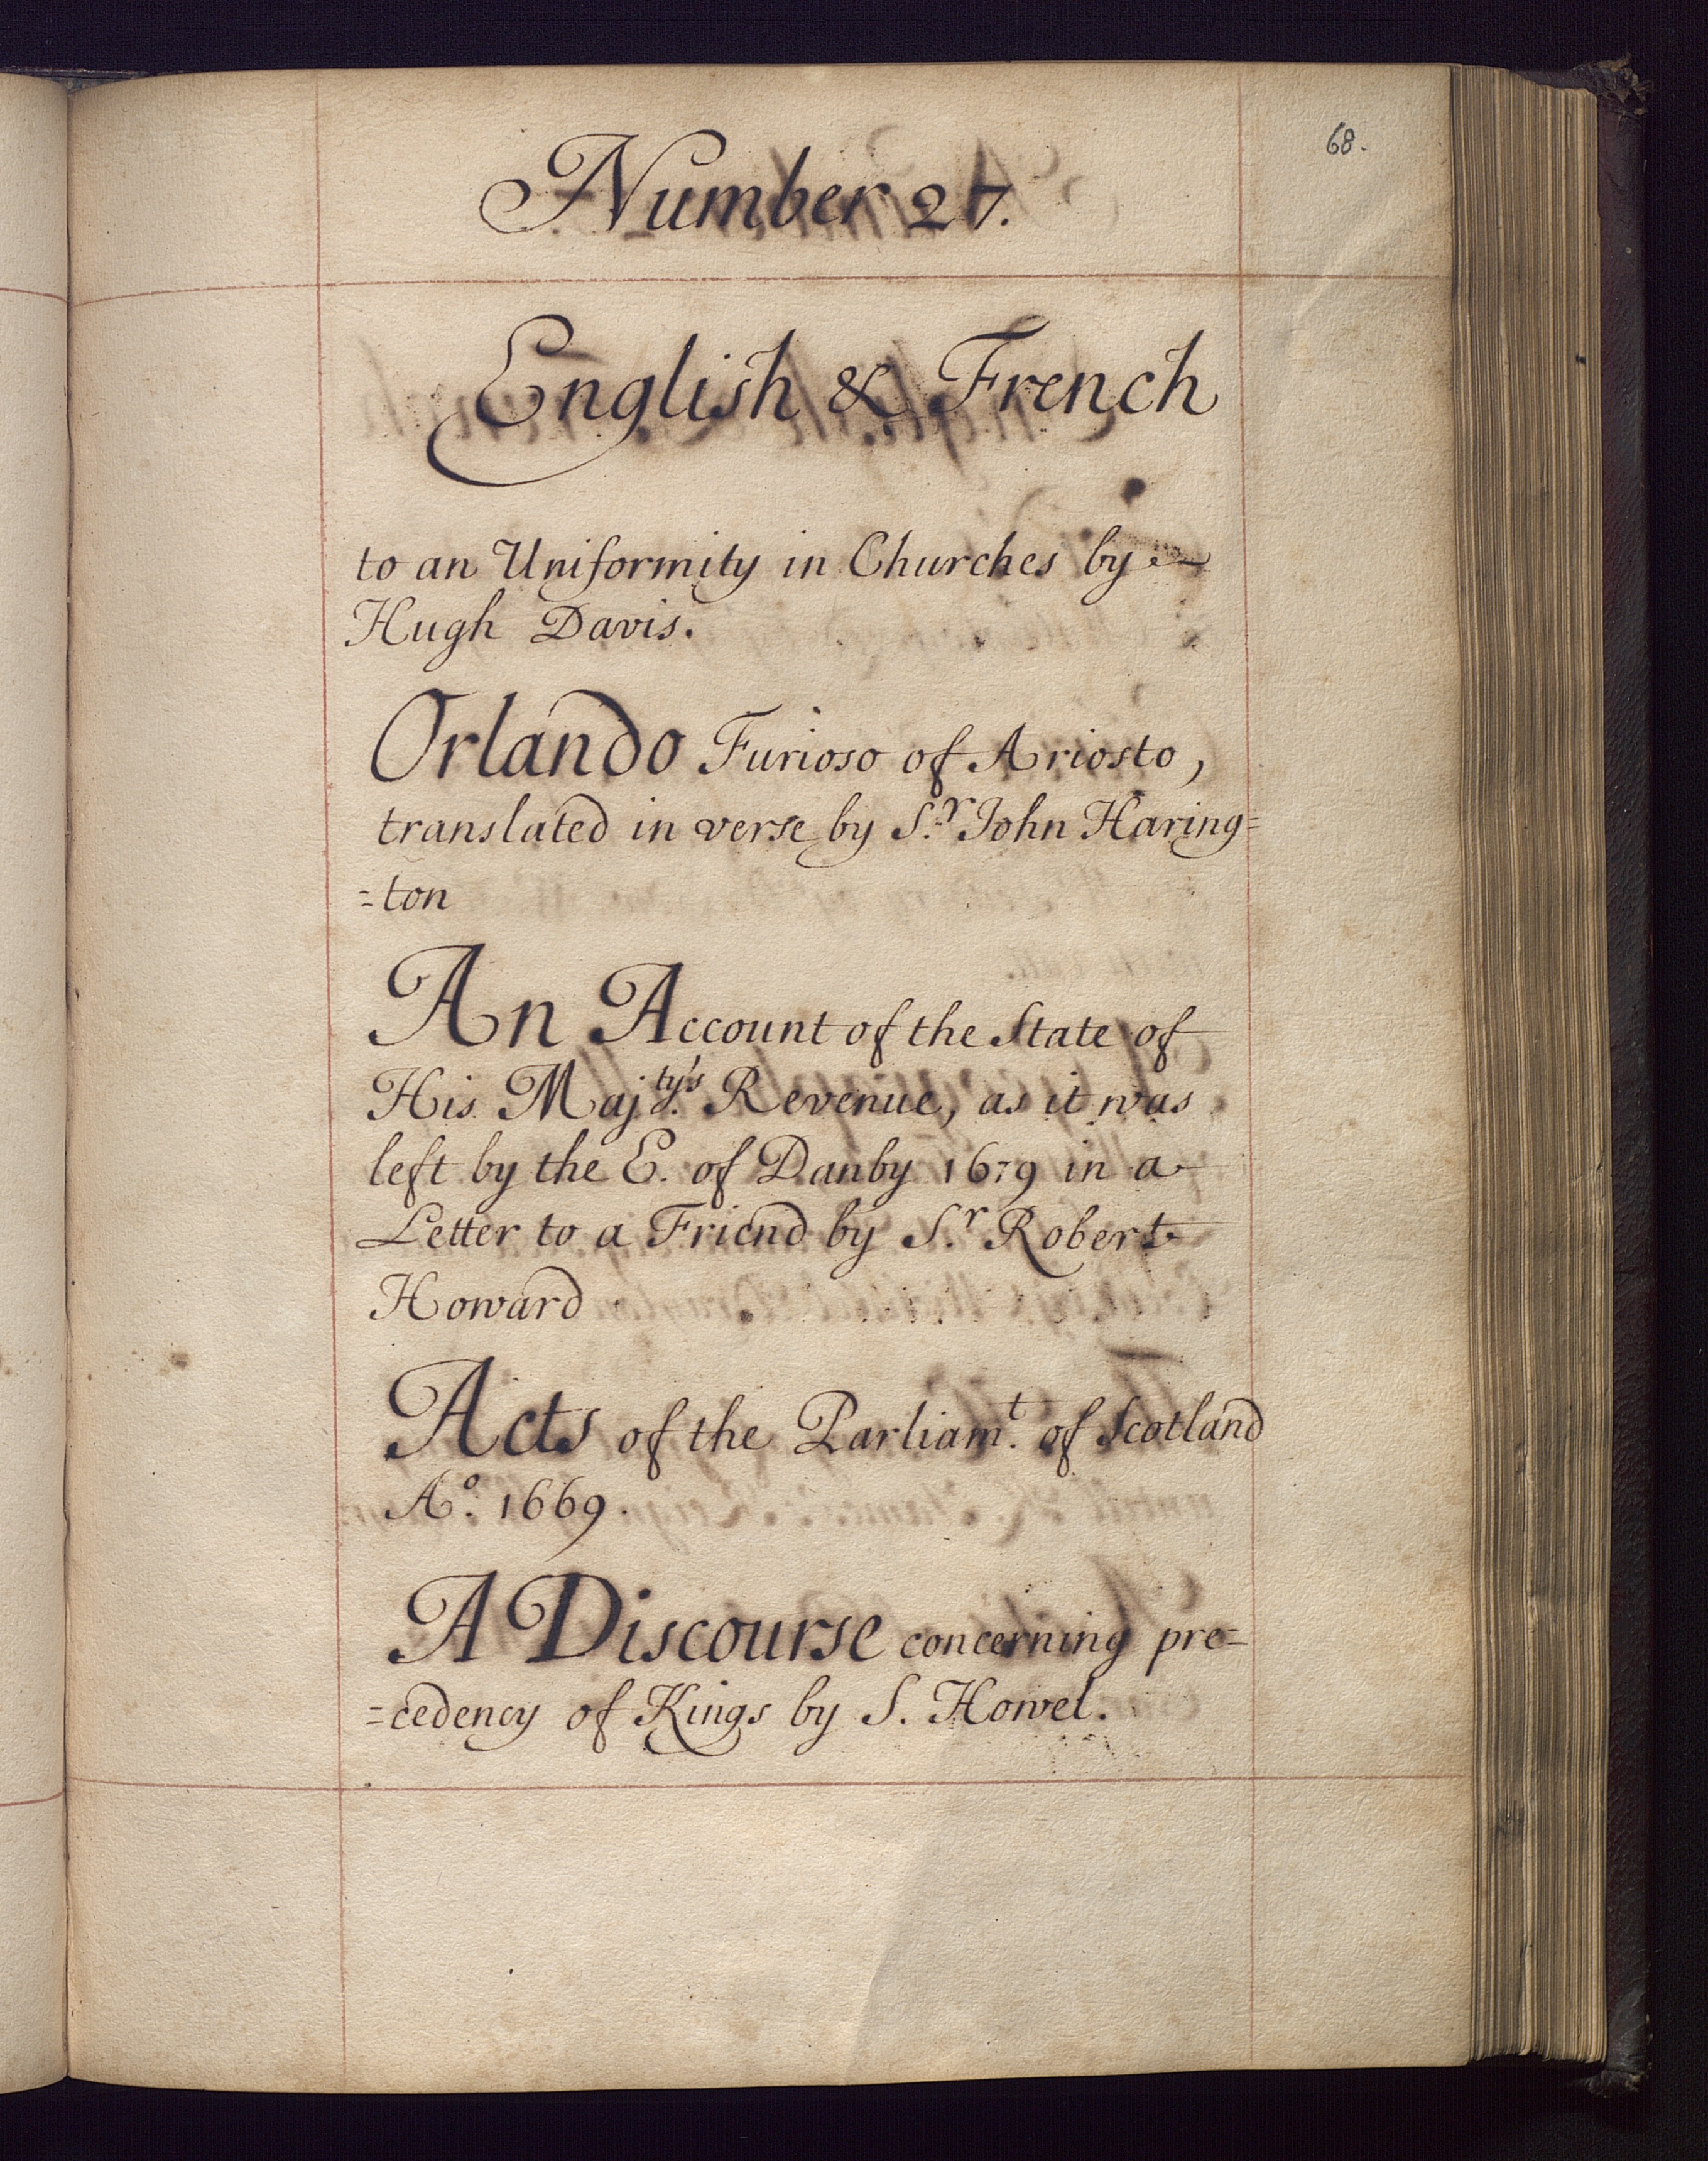 68.
Number 27.
English & French
to an Uniformity in Churches by
Hugh Davis.
Orlando Furioso of Ariosto,
translated in verse by S.r John Haring=
=ton
An Account of the State of
His Maj.ty's Revenue, as it was
left by the E. of Danby 1679 in a
Letter to a Friend by S.r Robert
Howard
Acts of the Parliam.t of Scotland
A.o 1669.
A Discourse concerning pre=
=cedency of Kings by S. Howel.